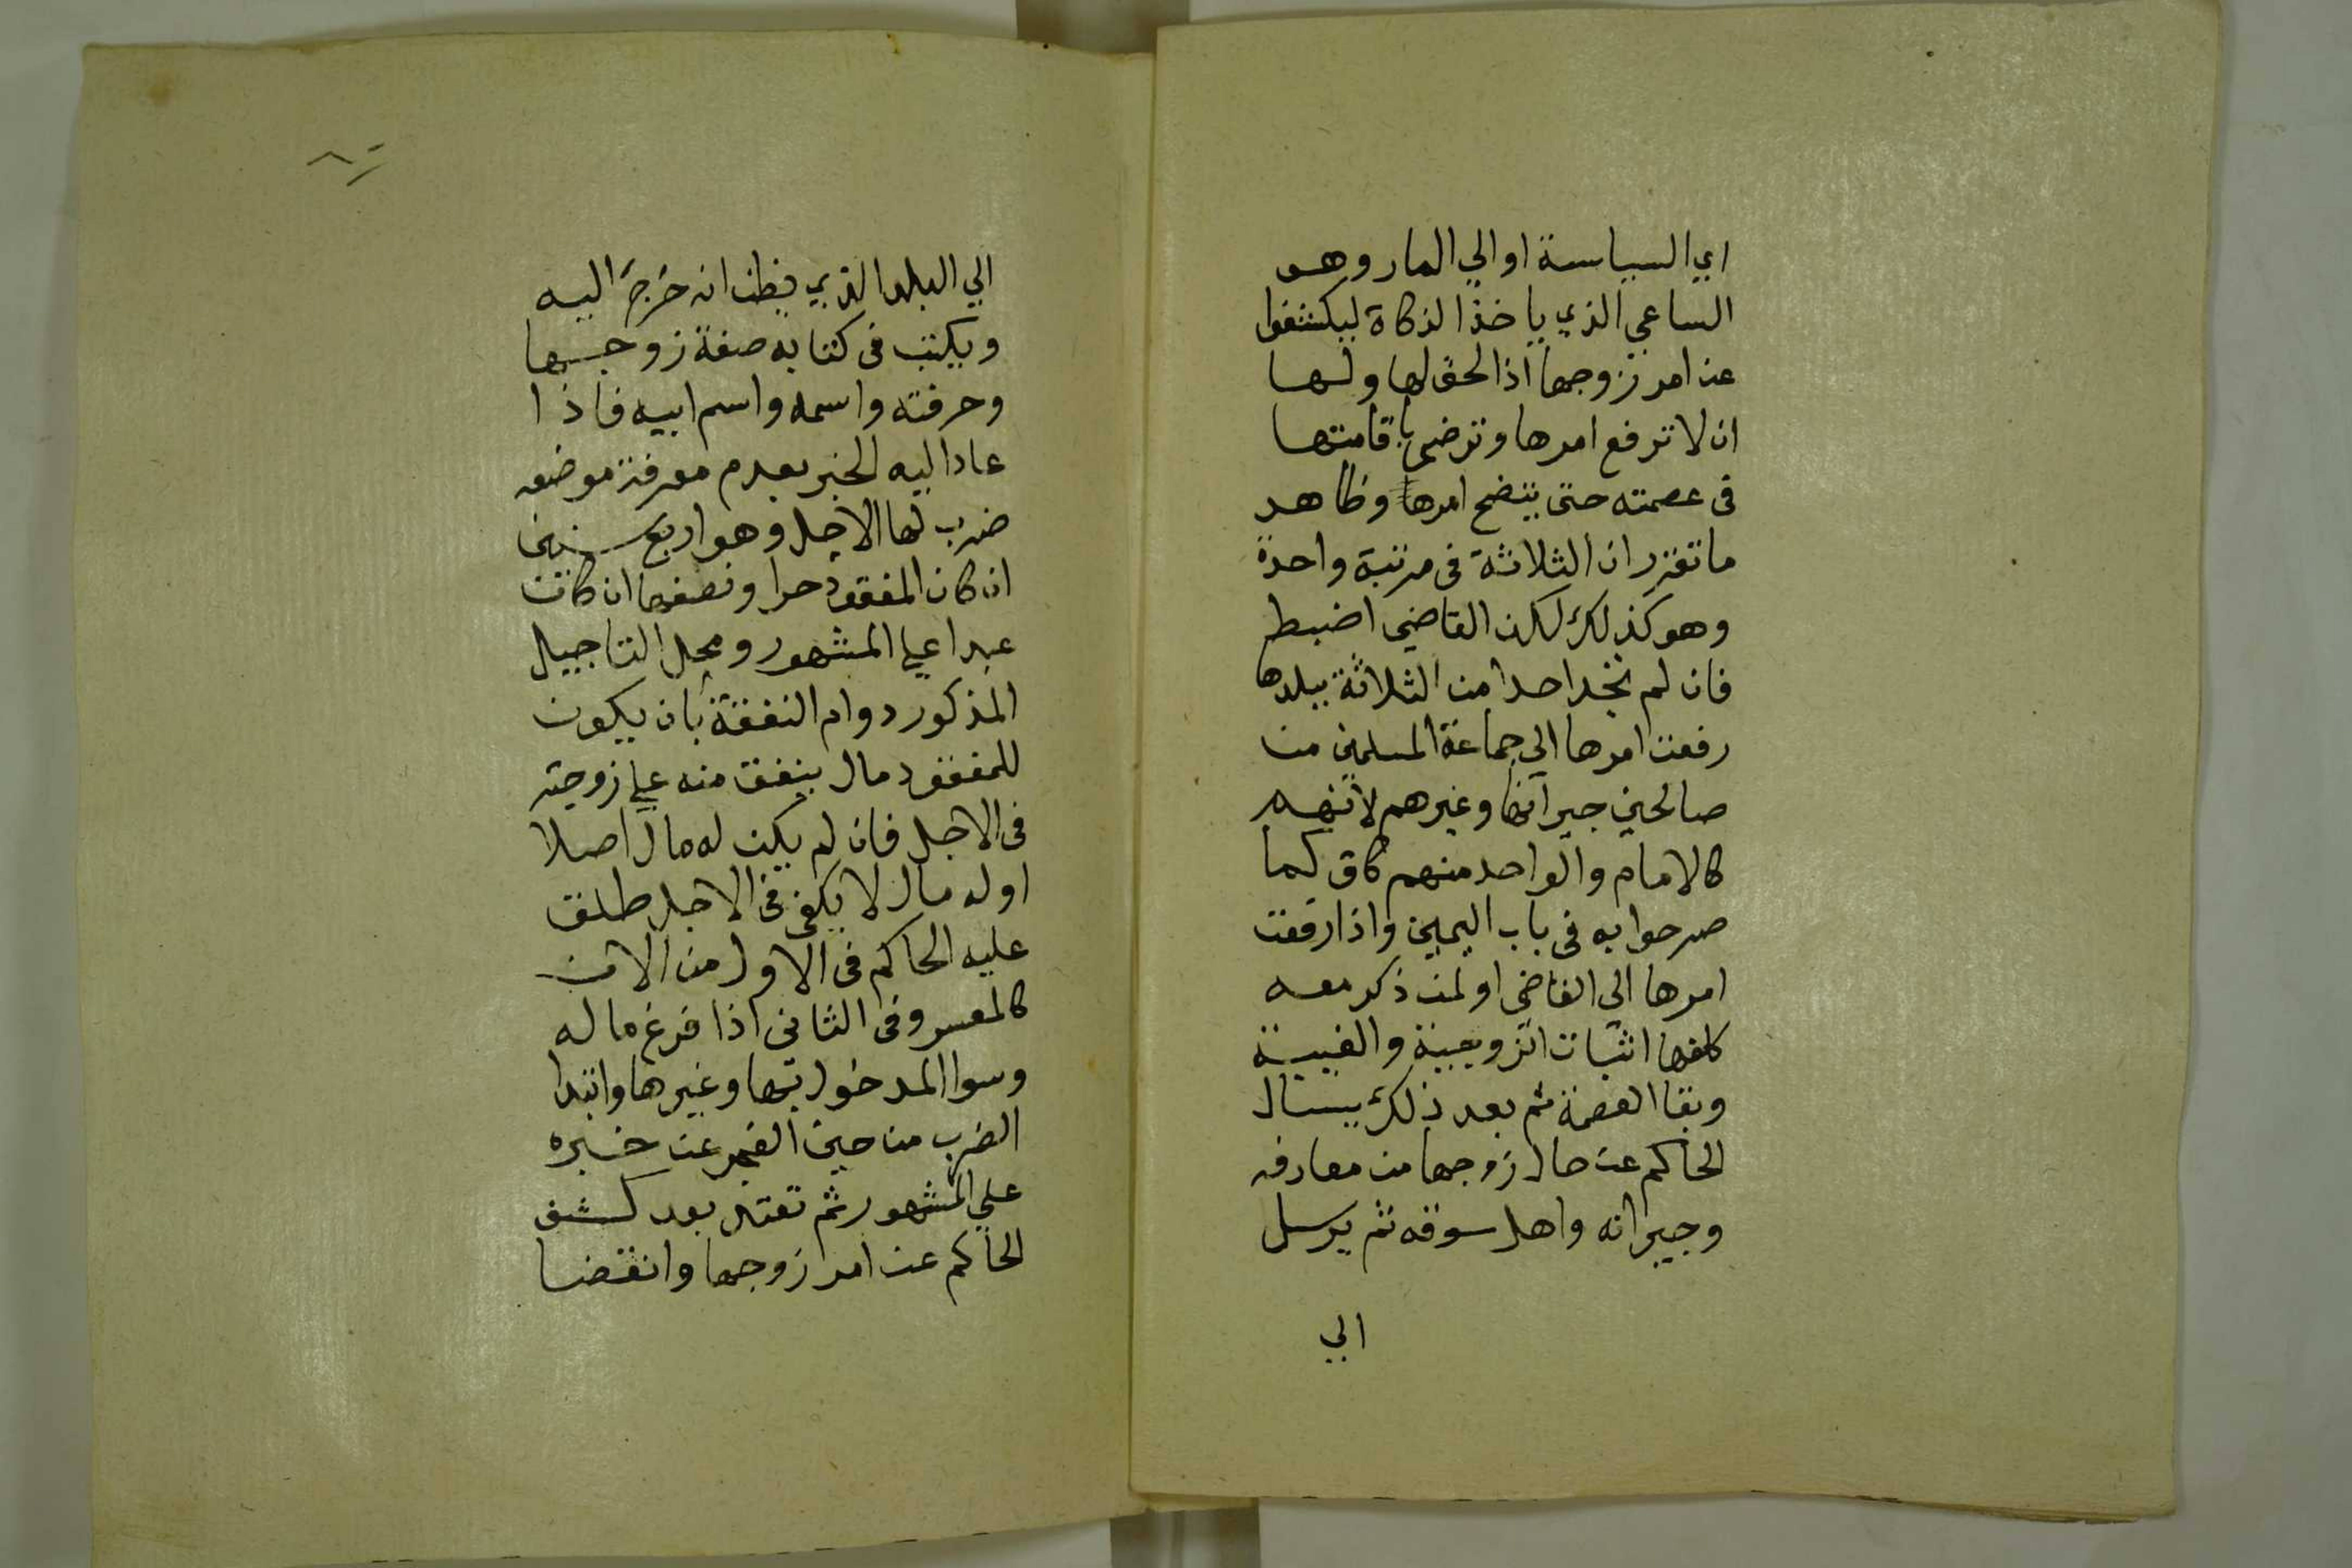 اي السياسة او الي المار وهو
الساعي الذي ياخذ الزكاة ليكشفوا
عن امر زوجها اذ الحق لها ولها
ان لا ترفع امرها وترضي باقامتها
في عصمته حتى يتضح امرها وظاهر
ما تقرر ان الثلاثة في مرتبة واحدة
وهو كذلك لكن القاضي اضبط
فان لم تجد احدا من الثلاثة ببلدها
رفعت امرها الي جماعة المسلمين من
صالحين جيرانها وغيرهم لانهم
كالامام والواحد منهم كاف كما
صرحوا به في باب اليمين واذا رفعت
امرها الى القاضي او لمن ذكر معه
كلفها اثبات الزوجية والغيبة
وبقا العصمة ثم بعد ذلك يسال
الحاكم عن حال زوجها من معارفه
وجيرانه واهل سوقه ثم يرسل
الي
الي البلد الذي يظن انه خرج اليه
ويكتب في كتابه صفة زوجها
وحرفته واسمه واسم ابيه فاذا
عاد اليه الخبر بعدم معرفة موضعه
ضرب لها الاجل وهو اربع سنين
ان كان المفقود حرا ونصفها ان كانت
عبدا علي المشهور ومحل التاجيل
المذكور دوام النفقة بان يكون
للمفقود مال ينفق منه علي زوجته
في الاجل فان لم يكن له مال اصلا
اوله مال لا يكفي في الاجل طلق
عليه الحاكم في الاول من الان
كالمعسر وفي الثاني اذا فرغ ماله
وسوا المدخول بها وغيرها وابتدا
الضرب من حين العجز عن خبره
علي المشهور ثم تعتد بعد كشف
الحاكم عن امر زوجها وانقضا